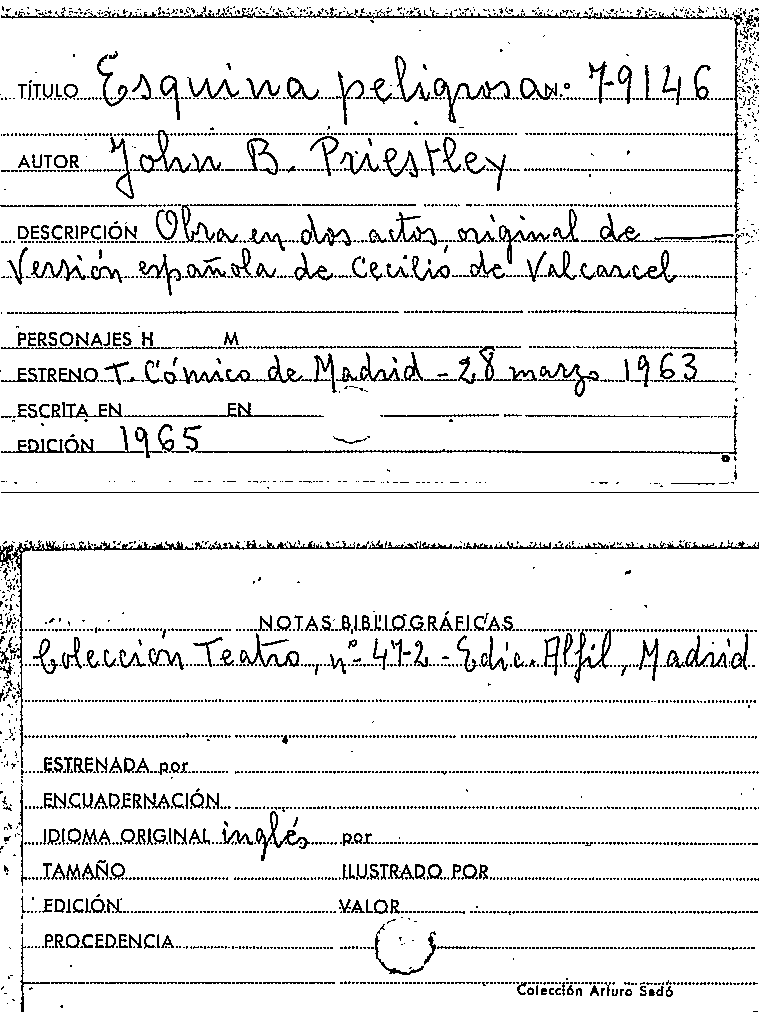 TÍTULO Esquina peligrosa N.º 7-9146
AUTOR John B. Priestley
DESCRIPCIÓN Obra en dos actos, original de —
Versión española de Cecilio de Valcarcel
PERSONAJES H M
ESTRENO T. Cómico de Madrid - 28 marzo 1963
ESCRITA EN EN
EDICIÓN 1965
NOTAS BIBLIOGRÁFICAS
Colección Teatro, nº 472 - Edic. Alfil, Madrid
ESTRENADA por
ENCUADERNACIÓN
IDIOMA ORIGINAL inglés por
TAMAÑO ILUSTRADO POR
EDICIÓN VALOR
PROCEDENCIA
Colección Arturo Sedó